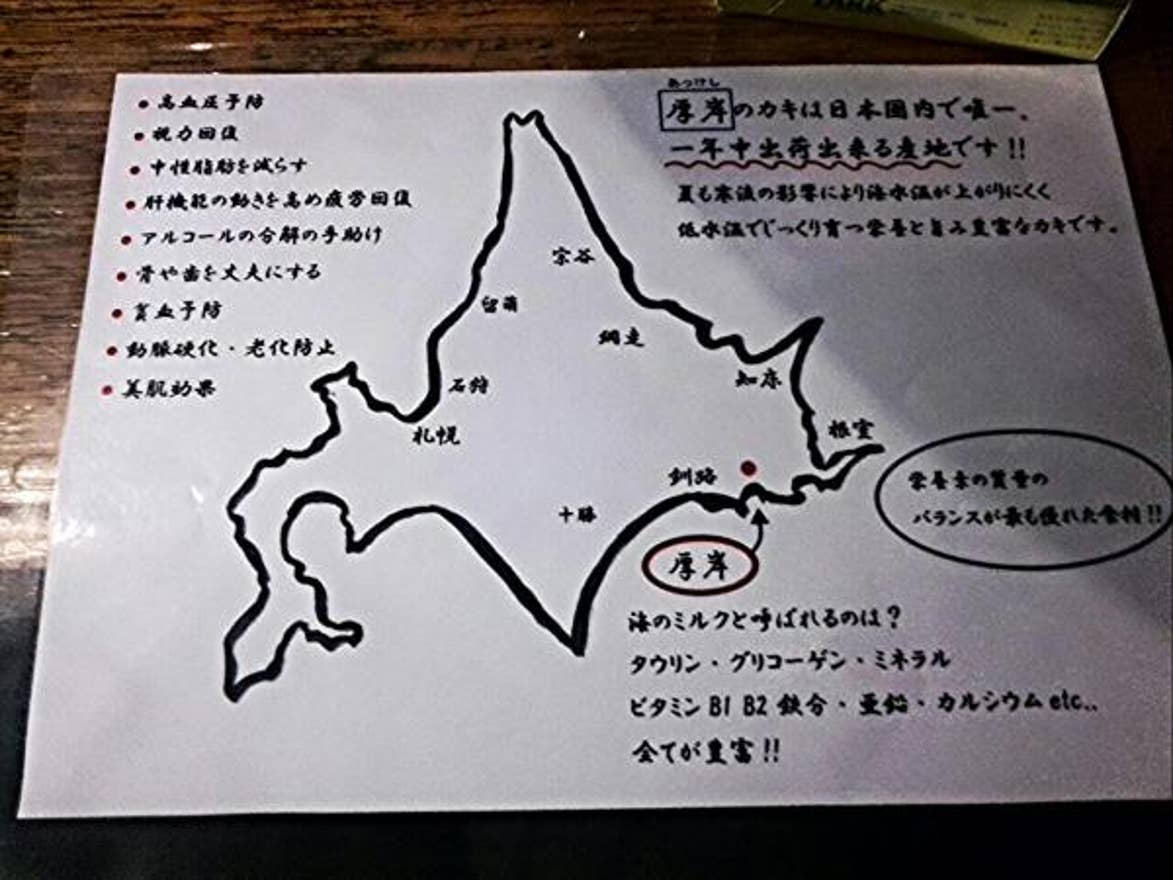 PARK
・高血圧予防
・視力回復
・中性脂肪を減らす
・肝機能の働きを高め疲労回復
・アルコールの分解の手助け
・骨や歯を丈夫にする
・貧血予防
・動脈硬化・老化防止
・美肌効果
あっけし
厚岸のカキは日本国内で唯一、
一年中出荷出来る産地です!!
夏も寒流の影響により海水温が上がりにくく
低水温でじっくり育つ栄養と旨み豊富なカキです。
宗谷
留萌
網走
知床
石狩
札幌
根室
釧路
十勝
厚岸
栄養素の質量の
バランスが最も優れた食材!!
海のミルクと呼ばれるのは?
タウリン・グリコーゲン・ミネラル
ビタミンB1 B2 鉄分・亜鉛・カルシウムetc..
全てが豊富!!